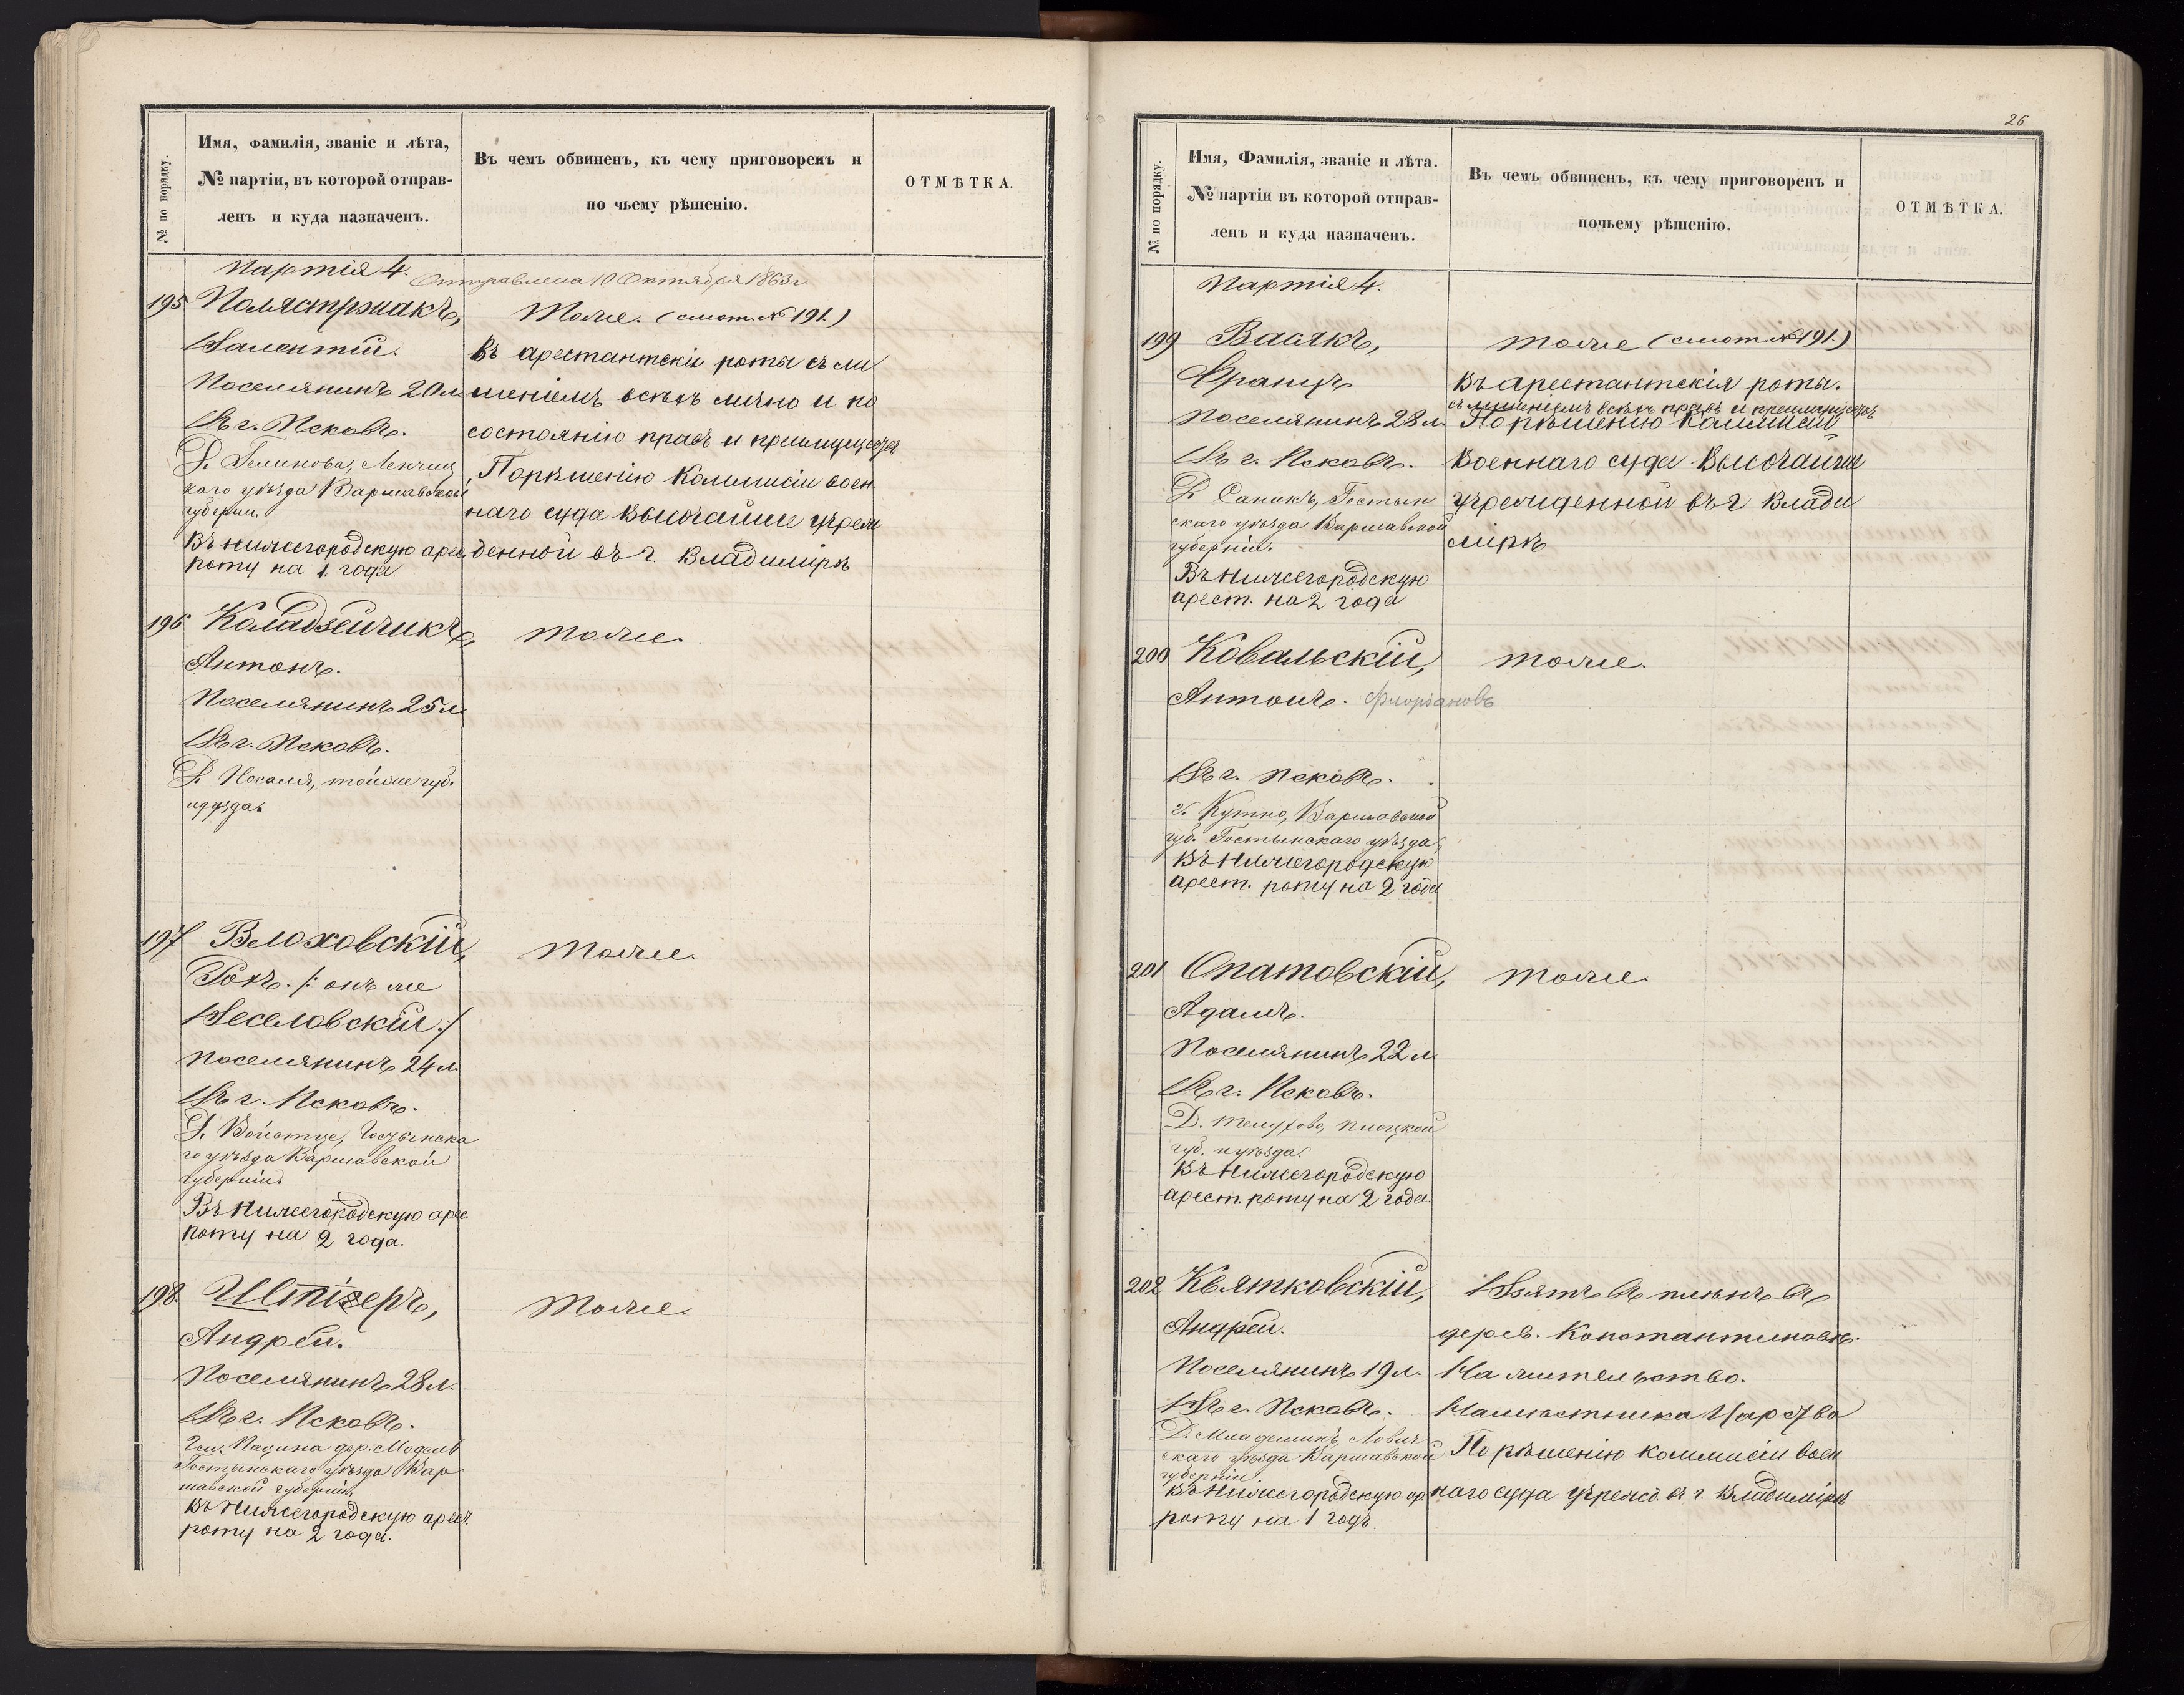 № по порядку.
Имя, фамилія, званіе и лѣта,
№ партіи, въ которой отправ-
ленъ и куда назначенъ.
Въ чемъ обвиненъ, къ чему приговоренъ и
по чьему рѣшенію.
ОТМѢТКА.
Партія 4.
Отправлена 10 Октября 1863 г.
195 Полястржакъ,
Валентій.
Поселянинъ 20 л.
Въ г. Псковъ.
Д. Ленчиц
каго уѣзда Варшавской
губерніи.
Въ нижегородскую арес.
роту на 1 года.
Тоже. (смот. № 191.)
Въ арестантскія роты съ ли
шеніемъ всѣхъ лично и по
состоянію правъ и преимуществъ
По рѣшенію Коммисіи воен
наго суда Высочайше учреж
денной въ г. Владимірѣ
196 Коладзейчикъ,
Антонъ.
Поселянинъ 25 л.
Въ г. Псковъ.
Д. Носаля, тойже губ.
и уѣзда.
Тоже.
197 Влоховскій,
Рохъ. /: онъ же
Веселовскій :/
Поселянинъ 24 л.
Въ г. Псковъ.
Д. Гостынска
го уѣзда Варшавской
губерніи.
Въ Нижегородскую арес.
роту на 2 года.
Тоже.
198. Штізеръ,
Андрей.
Поселянинъ 28 л.
Въ г. Псковъ.
Гм. Пацина дер. Модель
Гостынскаго уѣзда Вар
шавской губерніи.
Въ Нижегородскую арест.
роту на 2 года.
Тоже.
26
№ по порядку.
Имя, Фамилія, званіе и лѣта.
№ партіи въ которой отправ-
ленъ и куда назначенъ.
Въ чемъ обвиненъ, къ чему приговоренъ и
почьему рѣшенію.
ОТМѢТКА.
Партія 4.
199 Васякъ,
Францъ
Поселянинъ 28 л.
Въ г. Псковъ.
Д. Саникъ, Гостын
скаго уѣзда Варшавской
губерніи.
Въ Нижегородскую
арест. на 2 года
тоже (смот. № 191.)
Въ арестантскія роты.
съ лишеніемъ всѣхъ правъ и преимуществъ
По рѣшенію Коммисіи
Военнаго суда Высочайше
учрежденной въ г. Влади
мірѣ
200 Ковальскій,
Антонъ. Флоріановъ
Въ г. Псковъ.
г. Кутно, Варшавской
губ. Гостынскаго уѣзда
Въ Нижегородскую
арест. роту на 2 года
тоже.
201 Опатовскій,
Адамъ.
Поселянинъ 22 л.
Въ г. Псковъ.
Д. Плоцкой
губ. и уѣзда.
Въ Нижегородскую
арест. роту на 2 года.
тоже.
202 Квятковскій,
Андрей.
Поселянинъ 19 л.
Въ г. Псковъ.
Д. Лович
скаго уѣзда Варшавской
губерніи.
Въ Нижегородскую ар
роту на 1 годъ.
Взятъ въ плѣнъ въ
дерев. Константиновѣ.
На жительство.
Намѣстника Царства
По рѣшенію коммисіи воен
наго суда учрежд. въ г. Владимірѣ